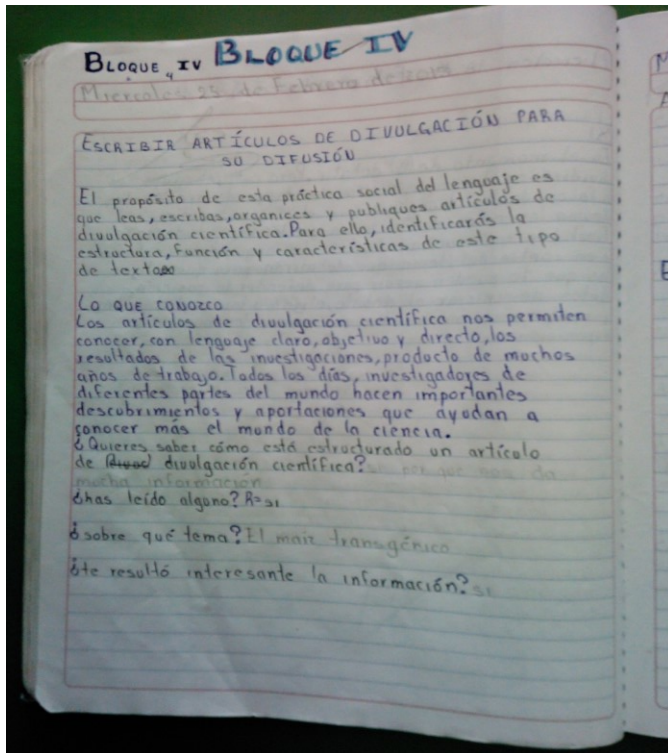 BLOQUE IV BLOQUE IV
Miercoles 25 de Febrero de
ESCRIBIR ARTÍCULOS DE DIVULGACIÓN PARA
SU DIFUSIÓN
El propósito de esta práctica social del lenguaje es
que leas, escribas, organices y publiques artículos de
divulgación científica. Para ello, identificarás la
estructura, función y características de este tipo
de texto
LO QUE CONOZCO
Los artículos de divulgación científica nos permiten
conocer, con lenguaje claro, objetivo y directo, los
resultados de las investigaciones, producto de muchos
años de trabajo. Todos los días, investigadores de
diferentes partes del mundo hacen importantes
descubrimientos y aportaciones que ayudan a
conocer más el mundo de la ciencia.
¿Quieres saber cómo está estructurado un artículo
de divulgación científica? si por que nos da
mucha información
¿has leído alguno? R= si
¿sobre qué tema? El maiz transgénico
¿te resultó interesante la información? si